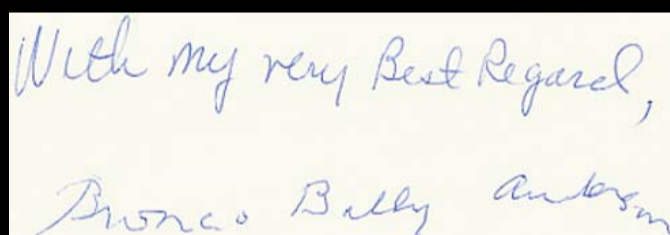 With my very Best Regard,
Bronco Billy Anderson